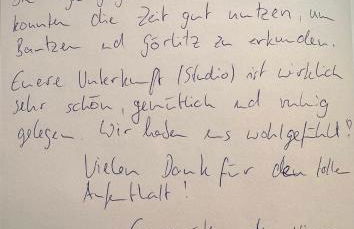 konnten die Zeit gut nutzen, um
Bautzen und Görlitz zu erkunden.
Euere Unterkunft (Studio) ist wirklich
sehr schön, gemütlich und ruhig
gelegen. Wir haben uns wohlgefühlt!
Vielen Dank für den tollen
Aufenthalt!